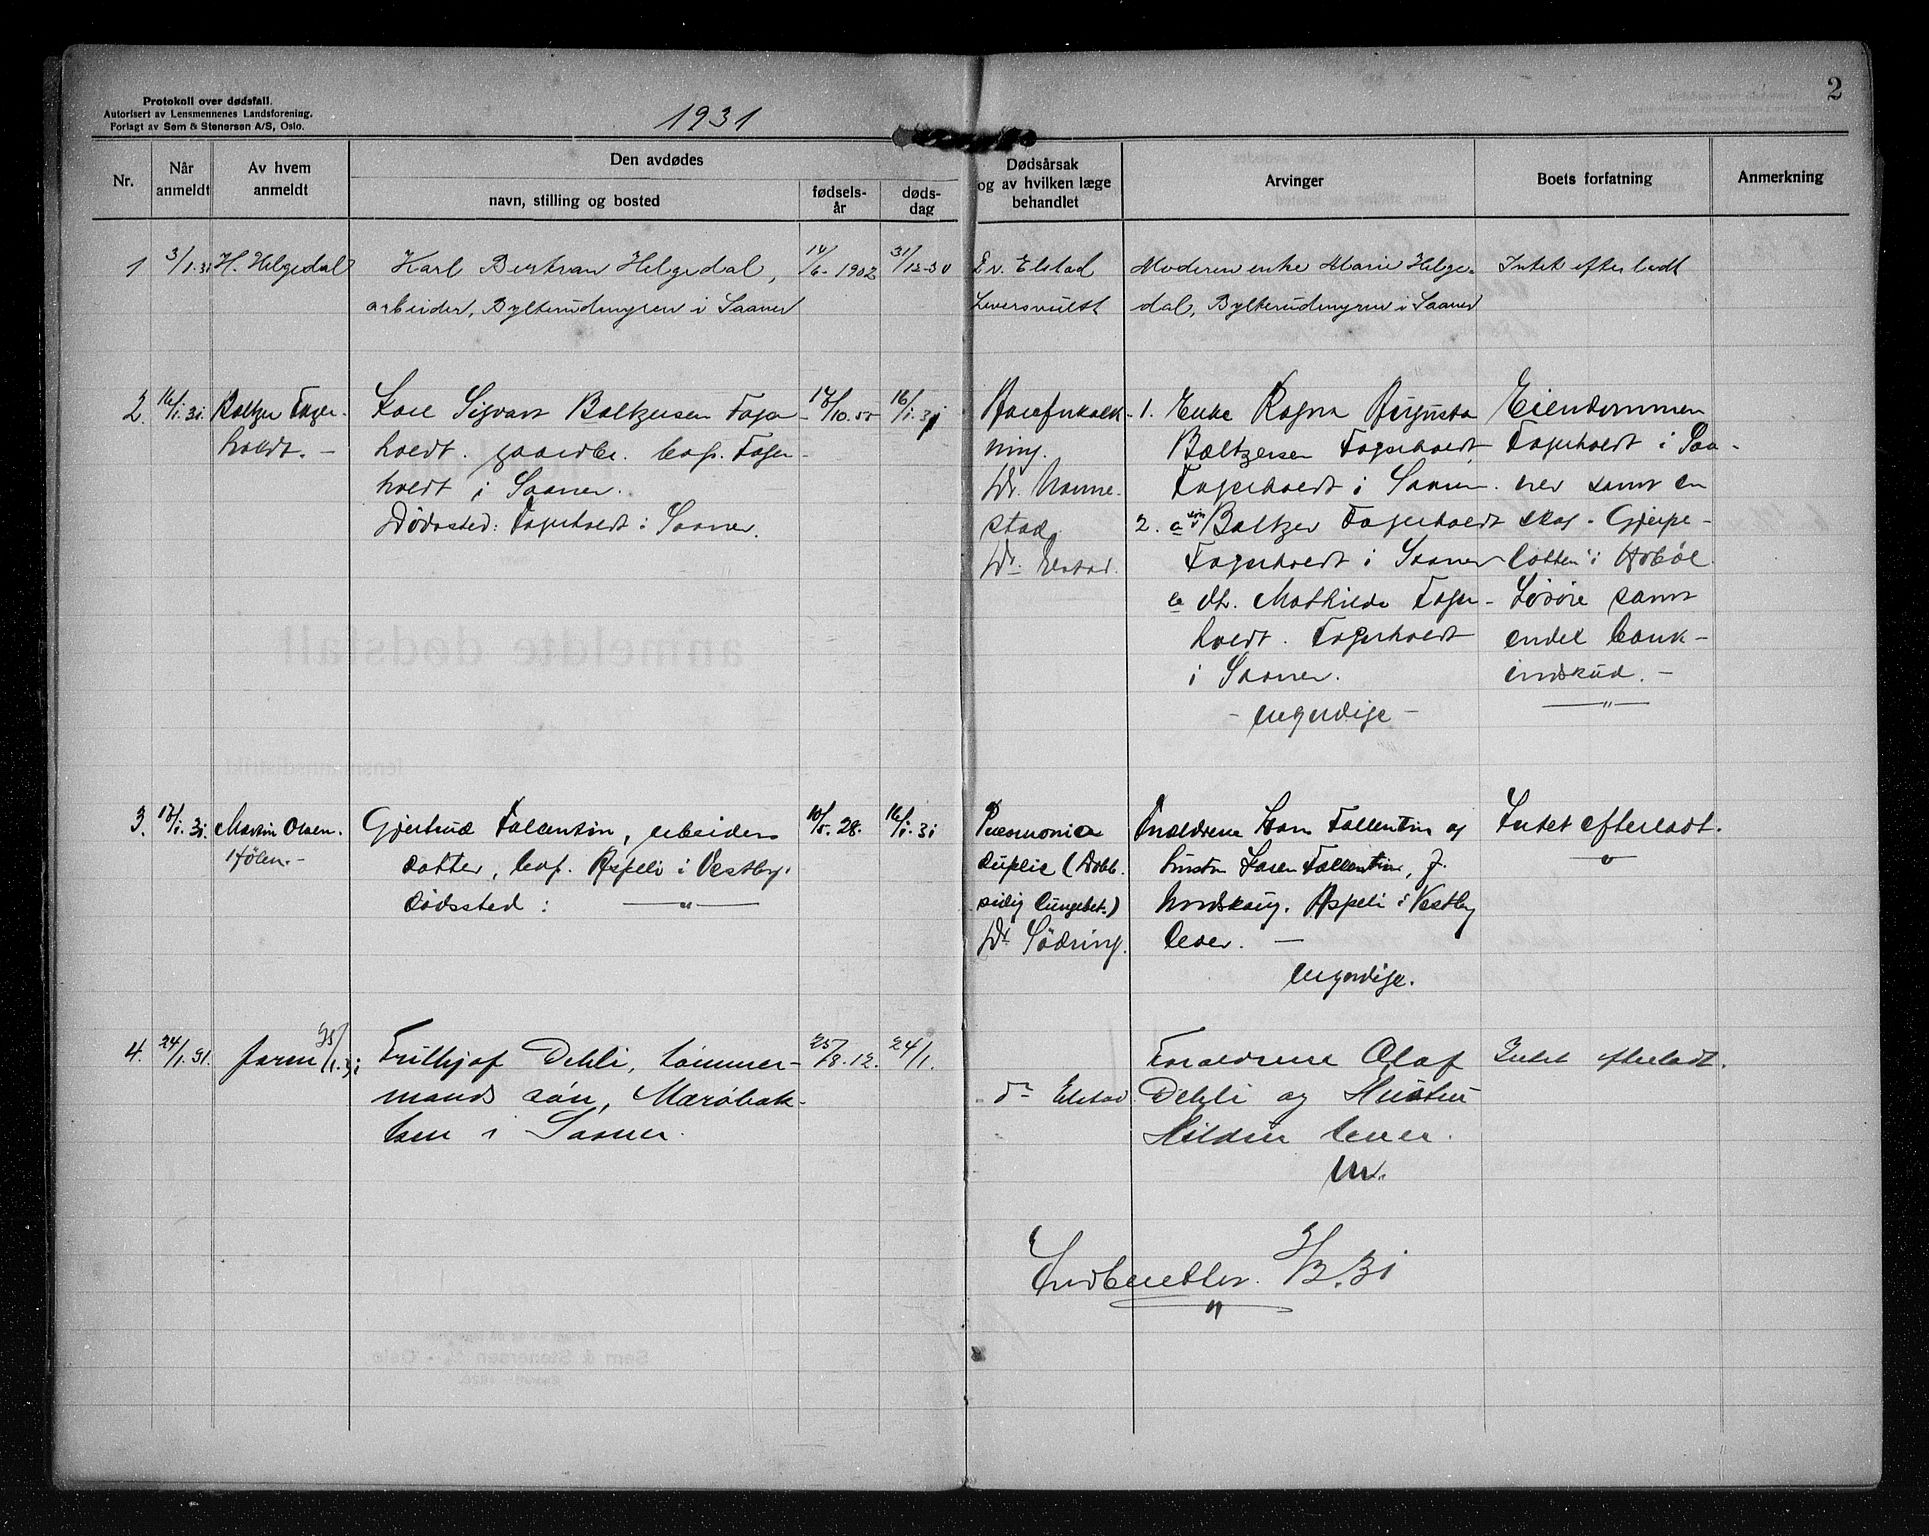 Protokoll over dødsfall.
Autorisert av Lensmennenes Landsforening.
Forlagt av Sem & Stenersen A/S, Oslo.
1931
2
Nr.
Når anmeldt
Av hvem anmeldt
Den avdødes
navn, stilling og bosted
fødsels-år
døds-dag
Dødsårsak og av hvilken læge behandlet
Arvinger
Boets forfatning
Anmerkning
1
3/1.31
H. Helgedal
Karl Bertran Helgedal,
arbeider, Bylterudmyren i Saaner
14/6-1902
31/12-30
Elstad
Leversvulst
Moderen enke Marie Helge-
dal, Bylterudmyren i Saaner
Intet efterladt
2.
16/1.31.
Baltzer Fager-
holdt. -
Baltzersen Fager-
holdt. gaardbr. Fager-
holdt i Saaner.
Dødssted: Fagerholdt i Saaner.
17/10.55
16/1.31
Aareforkalk-
ning.
Dr.
stad.
Dr. Elstad.
1. Enke Ragna Augusta
Baltzersen Fagerholdt
Fagerholdt i Saaner
2. a søn Baltzer Fagerholdt
Fagerholdt i Saaner
b dt. Mathilde Fager-
holdt. Fagerholdt
i Saaner.
- myndige -
Eiendommen
Fagerholdt i Saa-
ner samt en
skog - Gjerpe-
lotten i Hobøl
Løsøre samt
endel bank-
indskud. -
- " -
3.
17/1.31.
Martin Olsen.
Hølen. -
Gjertrud Fallentin, arbeider
datter, Aspeli i Vestby.
Dødssted: - " -
10/5.28.
16/1.31
Pneumonia
duplic (Dobb.
sidig lungebet.)
Dr Södring.
Forældrene Hans Fallentin og
hustru Fallentin, f.
Aspeli i Vestby
lever. -
4.
24/1.31.
25/1.31
Frithjof Dehli, tømmer-
mands søn, Mørøbak-
ken i Saaner.
25/8.12.
24/1.
dr Elstad
Forældrene Olaf
Dehli og Hustru
lever.
Intet efterladt.
Indberettes. 3/2.31
"